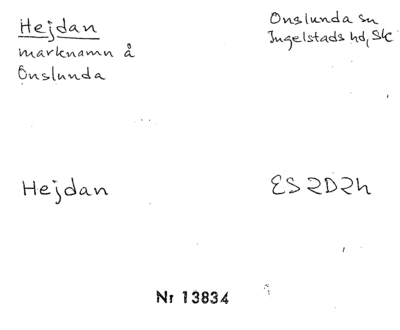 Hejdan
marknamn å
Önslunda
Onslunda sn
Ingelstads hd, Sk
Hejdan
ES2D2h
Nr 13834